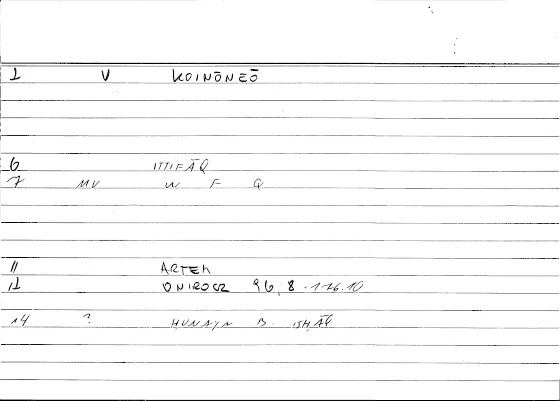 1 V KOINŌNEŌ
6 ITTIFĀQ
7 MV W F Q
11 ARTEM
11 ONIROCR 96, 8 - 176.10
14 ? HUNAYN B. ISHĀQ